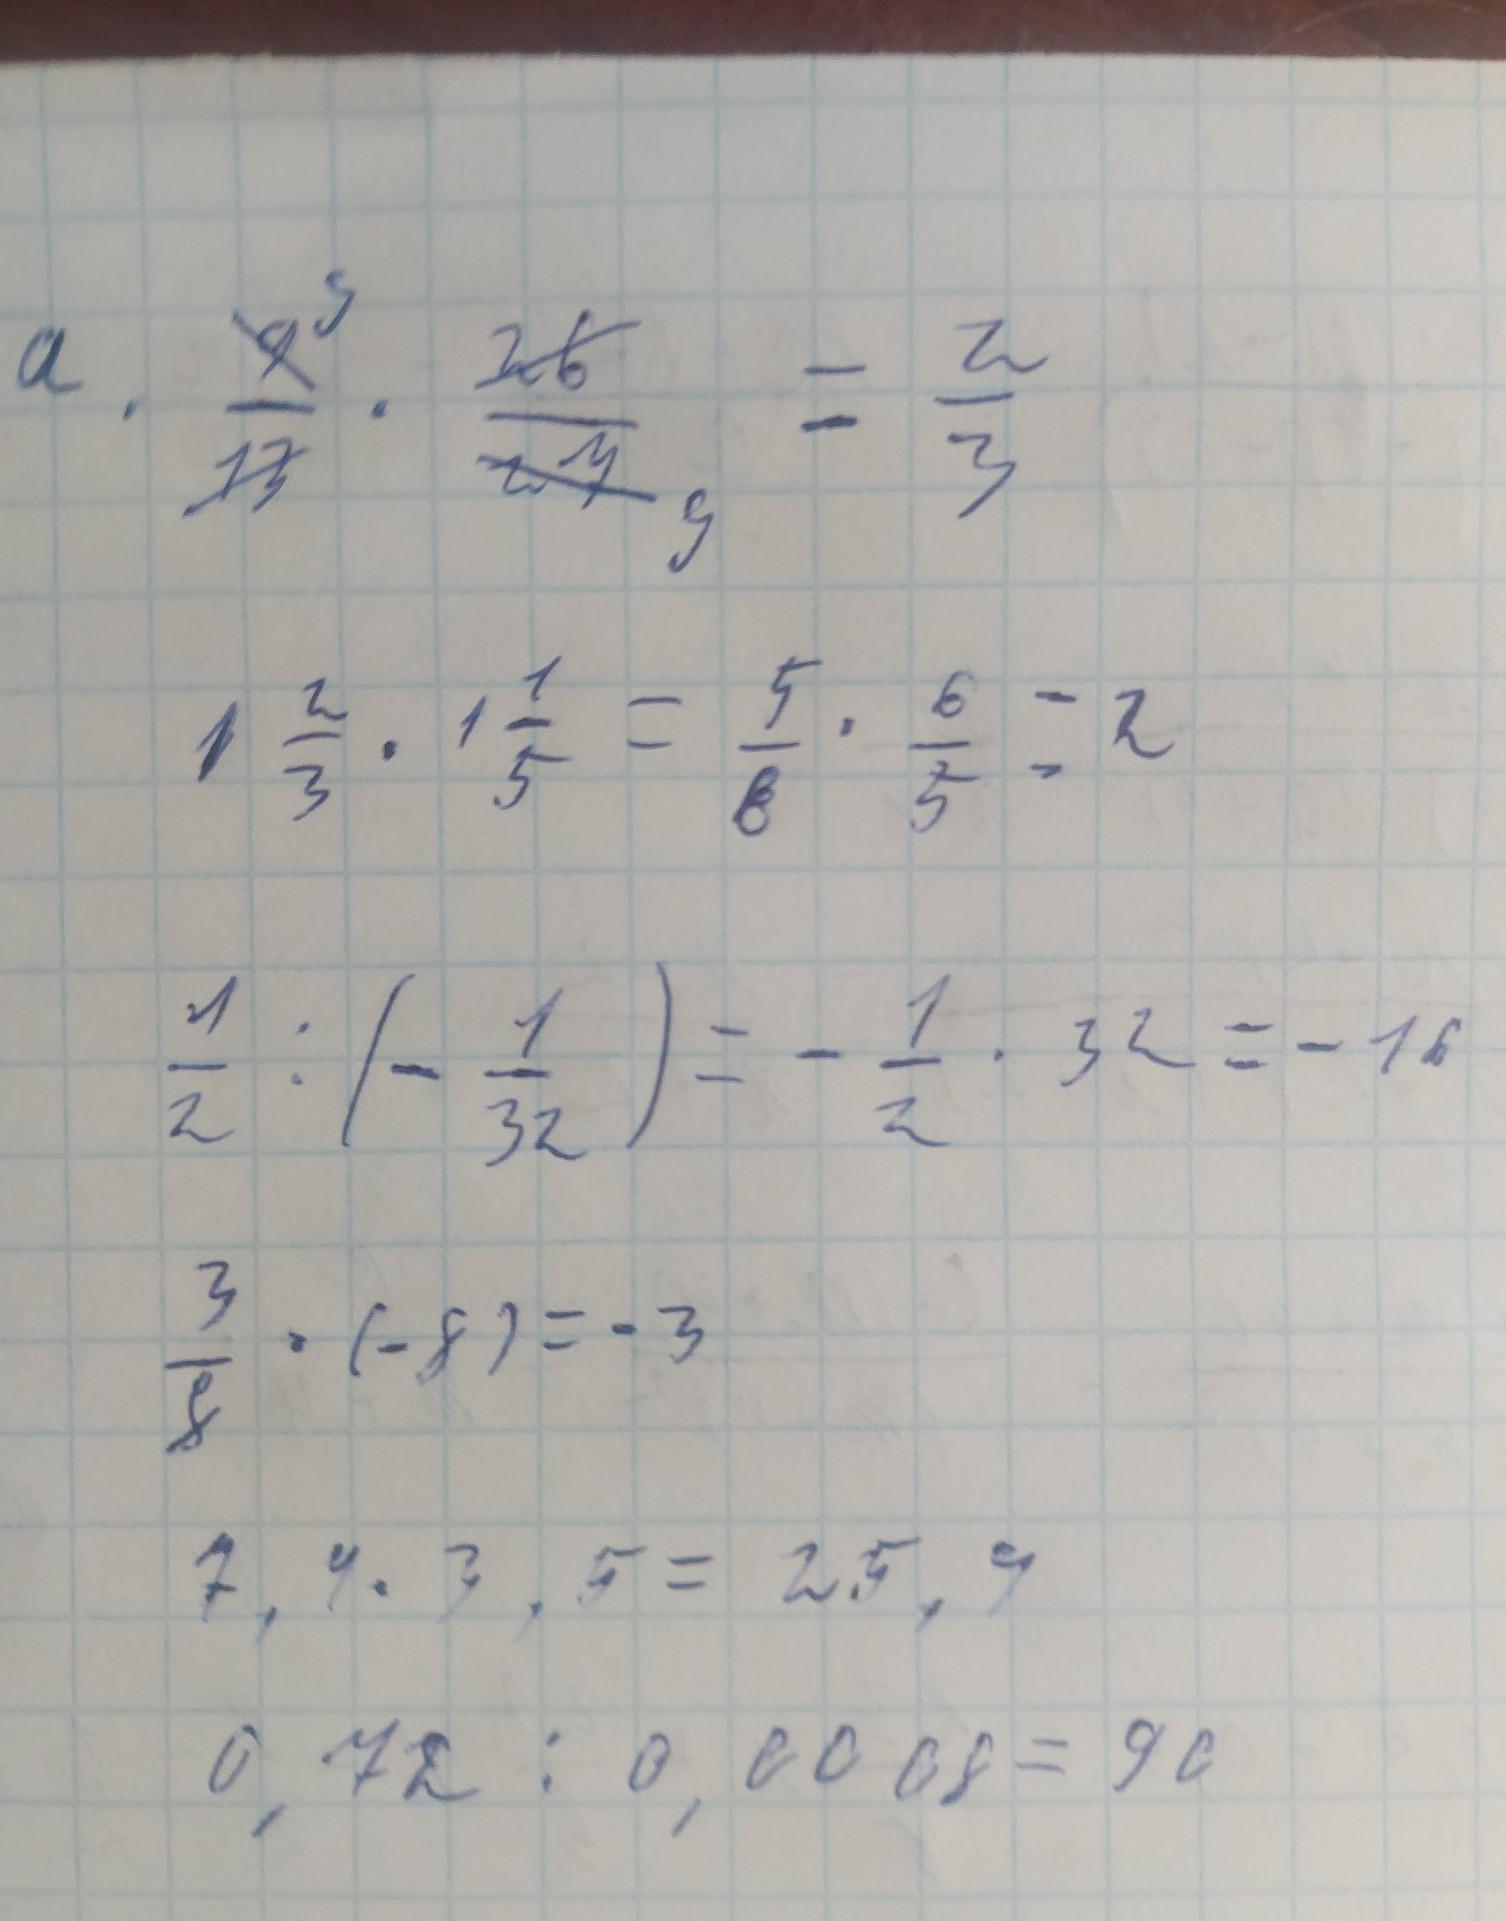 a. 9/13 · 26/27 = 2/3
1 2/3 · 1 1/5 = 5/6 · 6/5 = 2
1/2 : (- 1/32) = - 1/2 · 32 = - 16
3/8 · (-8) = -3
7,4 · 3,5 = 25,9
0,72 : 0,0008 = 90